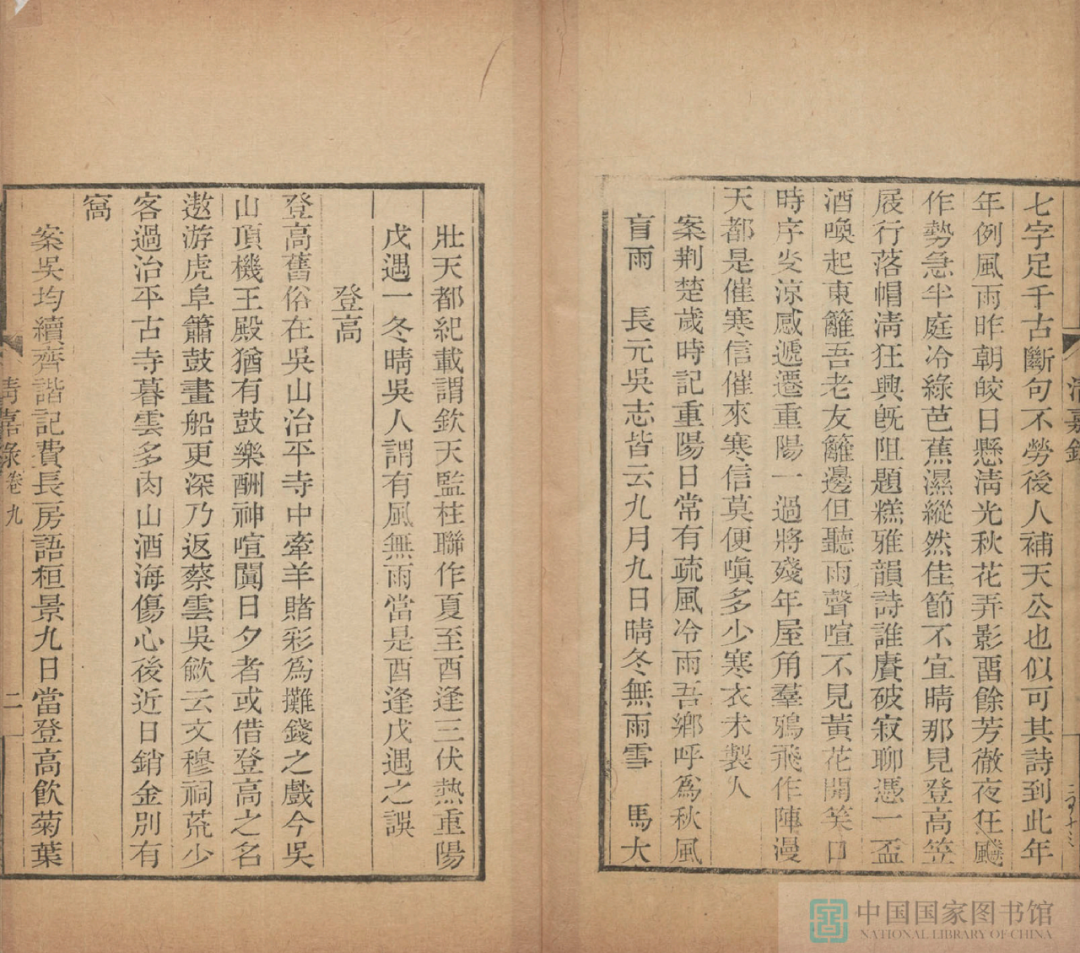 七字足千古斷句不勞後人補天公也似可其詩到此年
年例風雨昨朝皎日懸淸光秋花弄影畱餘芳徹夜狂飈
作勢急半庭冷綠芭蕉濕縱然佳節不宜晴那見登高笠
屐行落帽淸狂興旣阻題糕雅韻詩誰賡破寂聊憑一盃
酒喚起東籬吾老友籬邊但聽雨聲喧不見黃花開笑口
時序炎涼感遞遷重陽一過將殘年屋角羣鴉飛作陣漫
天都是催寒信催來寒信莫便嗔多少寒衣未製人
案荆楚歲時記重陽日常有疏風冷雨吾鄉呼爲秋風
盲雨 長元吳志皆云九月九日晴冬無雨雪 馬大
壯天都紀載謂欽天監柱聯作夏至酉逢三伏熱重陽
戊遇一冬晴吳人謂有風無雨當是酉逢戊遇之誤
登高
登高舊俗在吳山治平寺中牽羊賭彩爲攤錢之戲今吳
山頂機王殿猶有鼓樂酬神喧闐日夕者或借登高之名
遨游虎阜簫鼓畫船更深乃返蔡雲吳歈云文穆祠荒少
客過治平古寺暮雲多肉山酒海傷心後近日銷金別有
窩
案吳均續齊諧記費長房語桓景九日當登高飮菊葉
淸嘉錄卷九
二
中国国家图书馆
NATIONAL LIBRARY OF CHINA